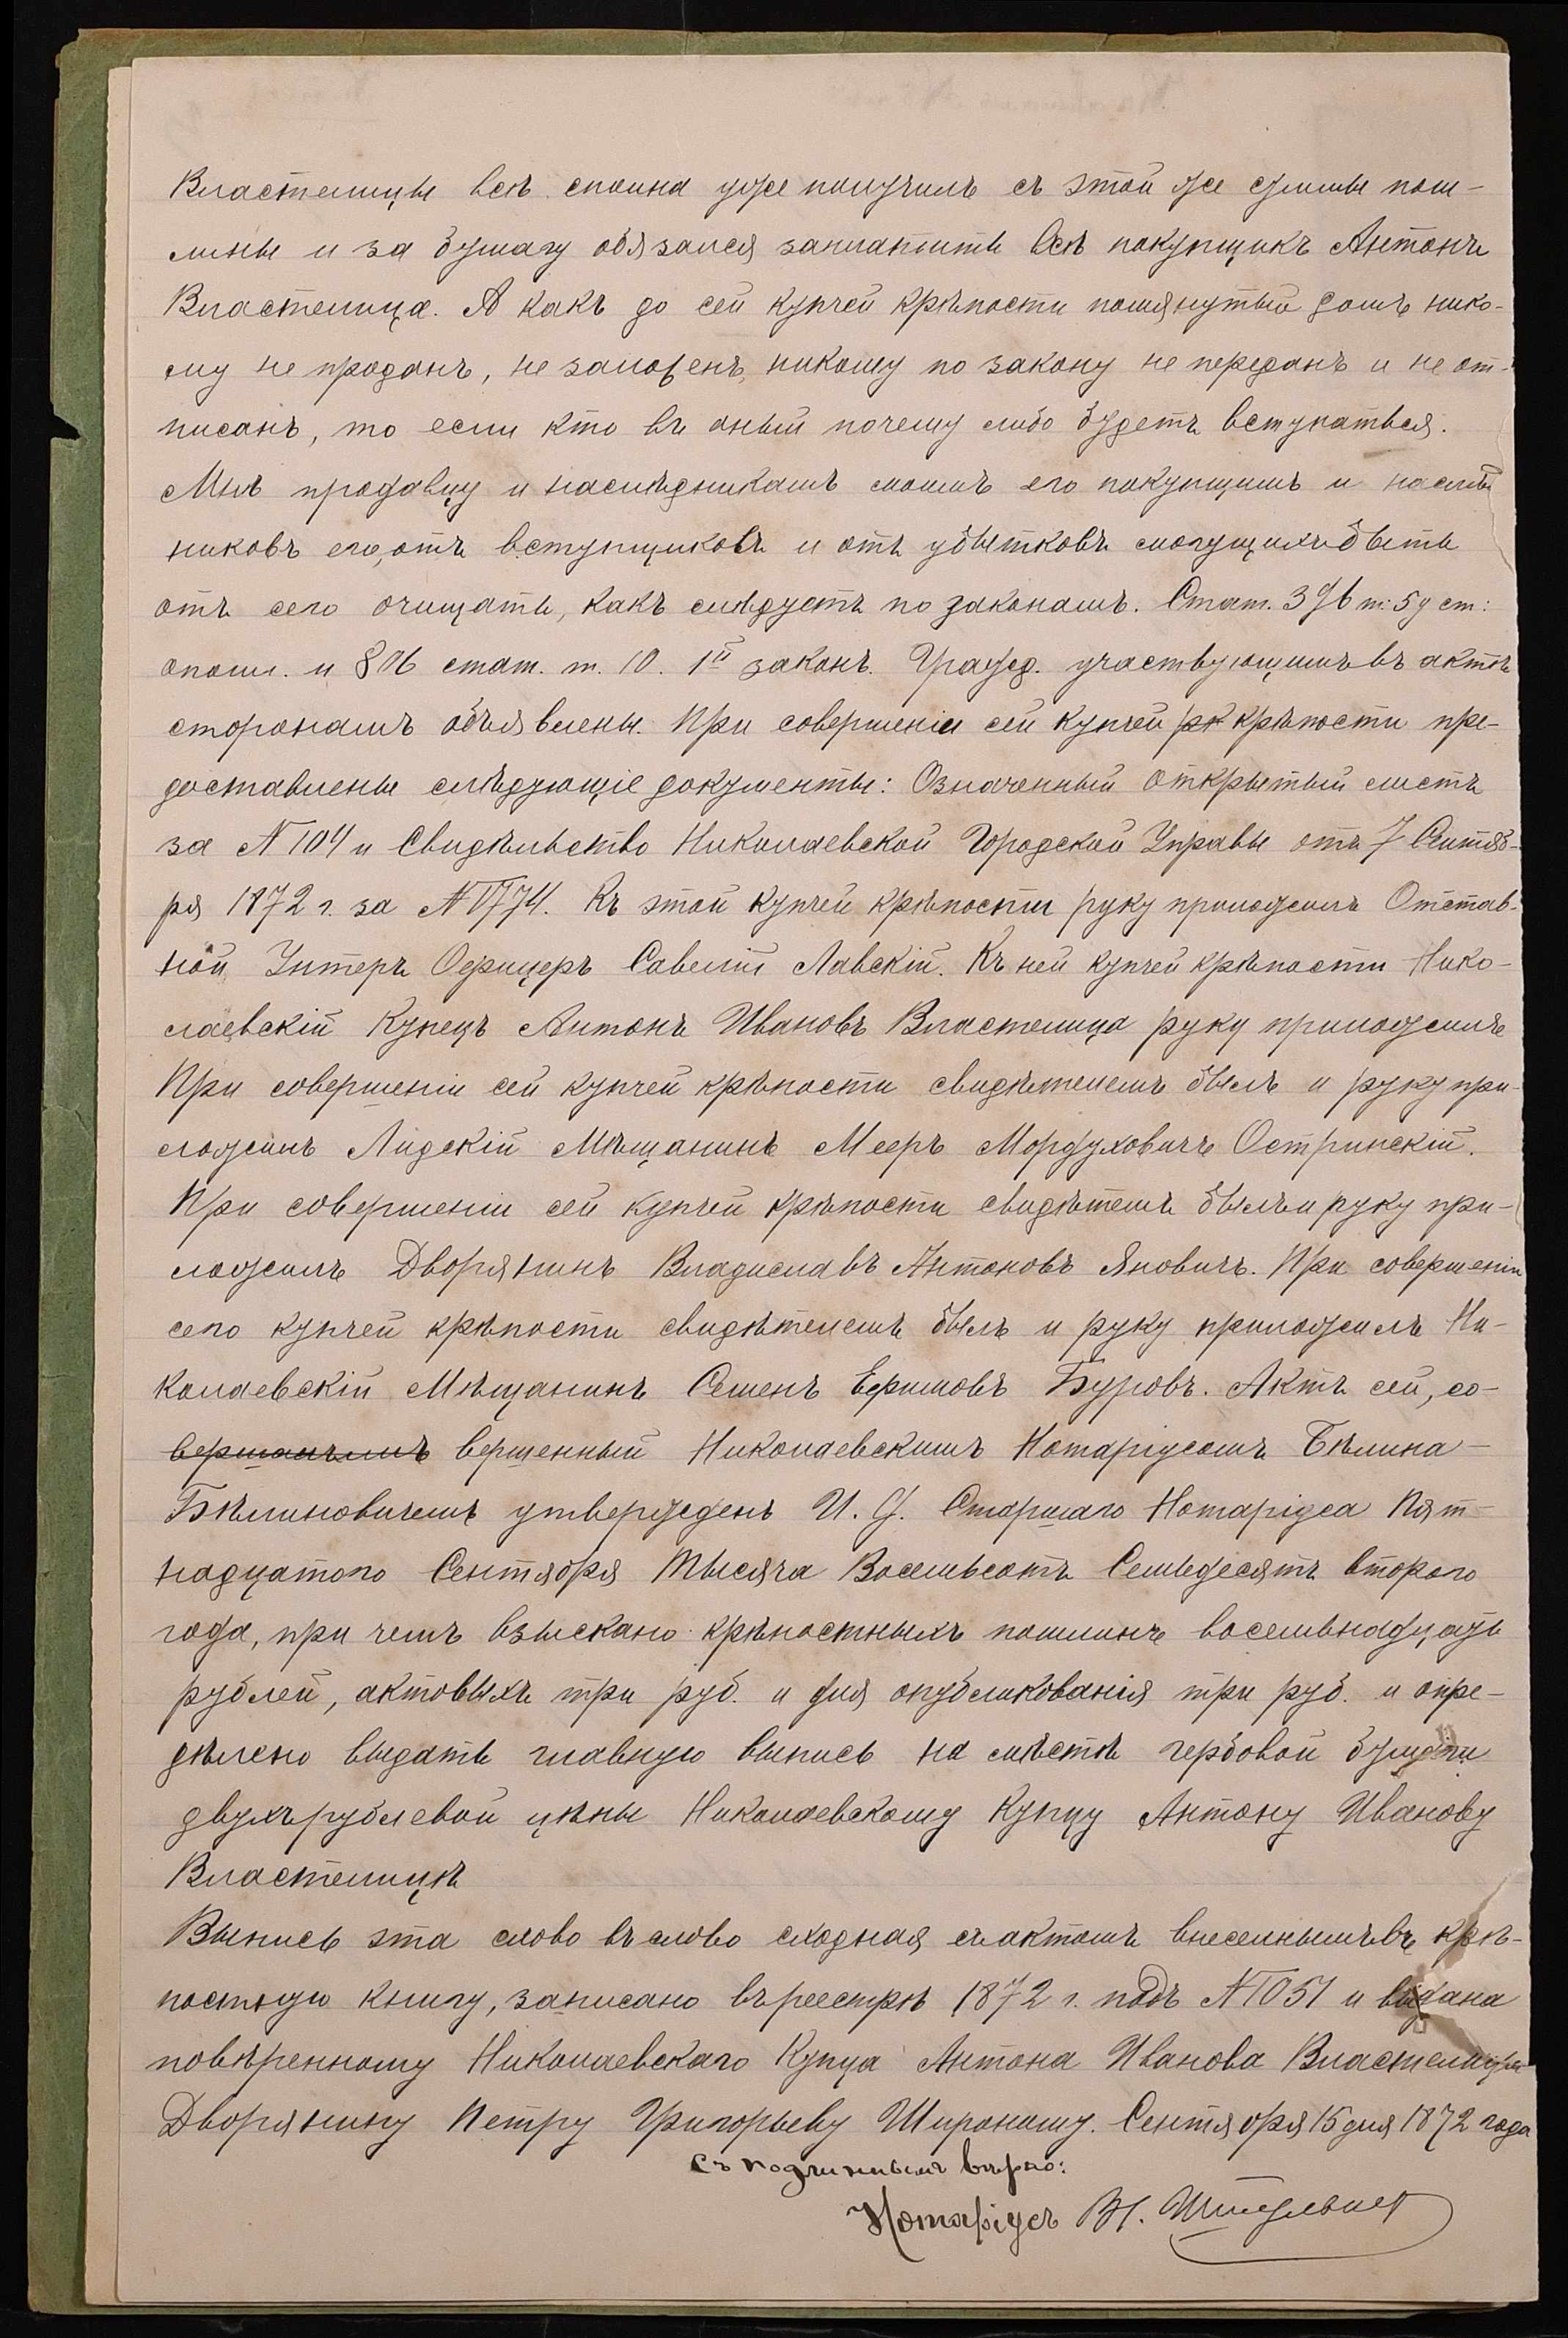 Властелицы всѣ сполна уже получилъ съ этой же суммы пош-
лины и за бумагу обязался заплатить всѣ покупщикъ Антонъ
Властелица. А какъ до сей купчей крѣпости помянутый домъ нико-
му не проданъ, не заложенъ, никому по закону не переданъ и не от-
писанъ, то если кто въ оный почему либо будетъ вступаться.
Мнѣ продавцу и наслѣдникамъ моимъ его покупщимъ и наслѣд
никовъ его, отъ вступщиковъ и отъ убытковъ могущихъ быть
отъ сего очищать, какъ слѣдуетъ по законамъ. Стат. 396 т: 5 у ст:
опошл. и 806 стат. т. 10. 1й законъ. Гражд. участвующимъ въ актѣ
сторонамъ объявлены. При совершеніи сей купчей рк крѣпости пре-
доставлены слѣдующіе документы: Означенный открытый листъ
за N 104 и Свидѣльство Николаевской Городской Управы отъ 7 Сентяб-
ря 1872 г. за N 1774. Къ этой купчей крѣпости руку приложилъ Отстав-
ной Унтеръ Офицеръ Савелій Лавскій. Къ ней купчей крѣпости Нико-
лаевскій Купецъ Антонъ Ивановъ Властелица руку приложилъ
При совершеніи сей купчей крѣпости свидѣтелемъ былъ и руку при-
ложилъ Лидскій Мѣщанинъ Мееръ Мордуховичъ Остринскій.
При совершеніи сей купчей крѣпости свидѣтемъ былъ и руку при-
ложилъ Дворянинъ Владиславъ Антоновъ Яновичъ. При совершеніи
сего купчей крѣпости свидѣтелемъ былъ и руку приложилъ Ни-
колаевскій Мѣщанинъ Семенъ Ефимовъ Буровъ. Актъ сей, со-
вершенный Николаевскимъ Нотаріусомъ Бѣлина-
Бѣлиновичемъ утвержденъ И. Д. Старшаго Нотаріуса Пят-
надцатого Сентября Тысяча Восемьсотъ Семьдесятъ второго
года, при чемъ взыскано крѣпостныхъ пошлинъ восемьнадцать
рублей, актовыхъ три руб. и для опубликованія три руб. и опре-
дѣлено выдать главную выпись на листѣ гербовой бумаги
двухърублевой цѣны Николаевскому Купцу Антону Иванову
Властелицѣ
Выпись эта слово въ слово сходная съ актомъ внесеннымъ въ крѣ-
постную книгу, записано въ реестрѣ 1872 г. подъ N 1051 и выдана
повѣренному Николаевскаго Купца Антона Иванова Властелицы
Дворянину Петру Григорьеву Широкому. Сентября 15 дня 1872 года
Съ подлиннымъ вѣрно:
Нотаріусъ